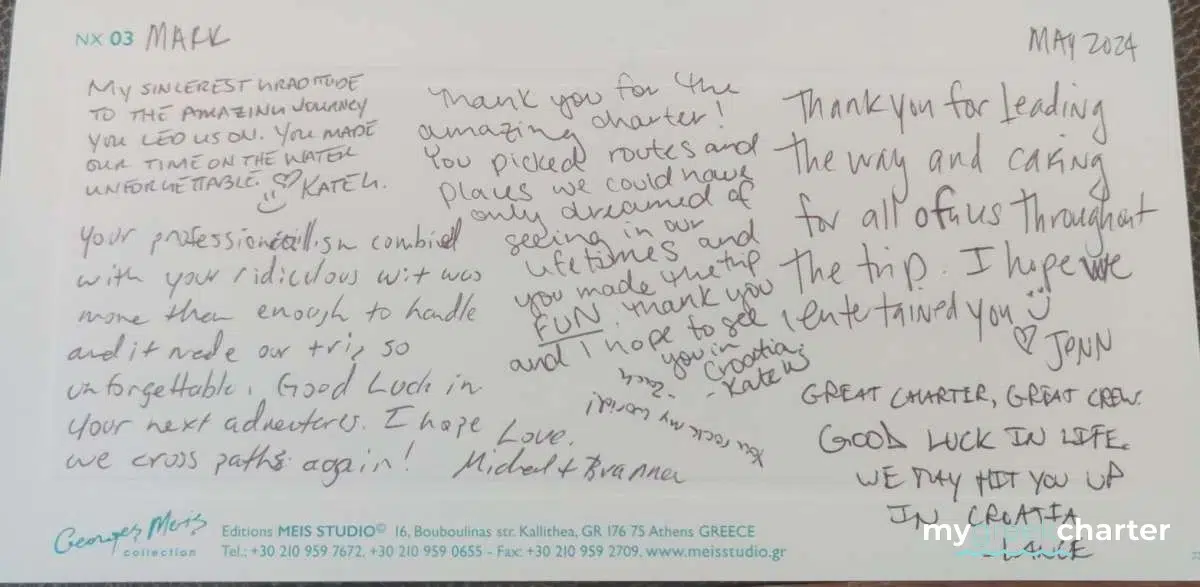 NX 03 MARK
MAY 2024
MY SINCEREST GRADITUDE
TO THE AMAZING JOURNEY
YOU LED US ON. YOU MADE
OUR TIME ON THE WATER
UNFORGETTABLE. ♡ KATE G.
Your professionalism combined
with your ridiculous wit was
more then enough to handle
and it made our trip so
unforgettable. Good Luck in
your next adventures. I hope
we cross paths again!
Love,
Michael + Branner
Thank you for the
amazing charter!
You picked routes and
places we could have
only dreamed of
seeing in our
lifetimes and
you made the trip
FUN. Thank you
and I hope to see
you in
Croatia.
- Kate W
You rock my world!
- Zach
Thank you for leading
the way and caring
for all of us throughout
the trip. I hope we
entertained you
♡ JENN
GREAT CHARTER, GREAT CREW.
GOOD LUCK IN LIFE.
WE MAY HIT YOU UP
IN CROATIA
- LANCE
Georges Meis
collection
Editions MEIS STUDIO© 16, Bouboulinas str. Kallithea, GR 176 75 Athens GREECE
Tel.: +30 210 959 7672, +30 210 959 0655 - Fax: +30 210 959 2709. www.meisstudio.gr
my charter